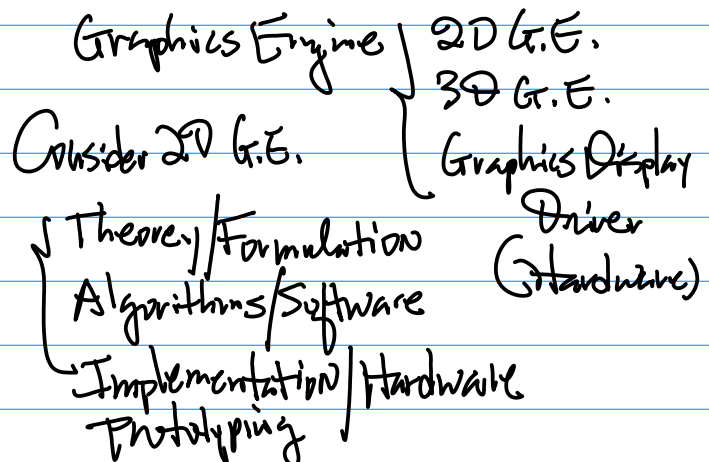 Graphics Engine
2D G.E.
3D G.E.
Graphics Display
Driver
(Hardware)
Consider 2D G.E.
Theory/Formulation
Algorithms/Software
Implementation/Hardware
Prototyping